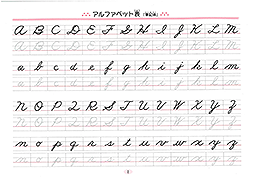 アルファベット表（筆記体）
A B C D E F G H I J K L M
a b c d e f g h i j k l m
N O P Q R S T U V W X Y Z
n o p q r s t u v w x y z